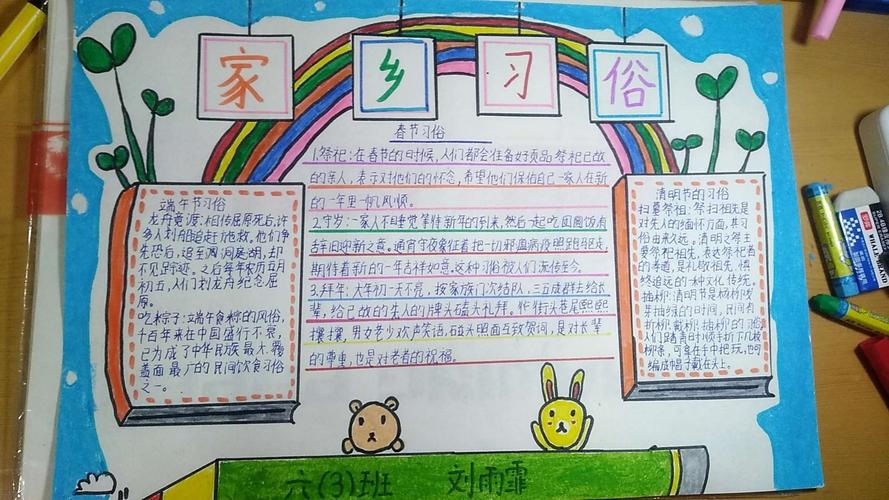 家乡习俗
端午节习俗
龙舟竞渡:相传屈原死后,许
多人划船追赶拯救。他们争
先恐后,追至洞庭湖,却
不见踪迹。之后每年农历五月
初五,人们划龙舟纪念屈
原。
吃粽子:端午食粽的风俗,
千百年来在中国盛行不衰,
已为成了中华民族最大覆
盖面最广的民间饮食习俗
之一。
春节习俗
1.祭祀:在春节的时候,人们都会准备好贡品祭祀已故
的亲人,表示对他们的怀念,希望他们保佑自己一家人在新
的一年里一帆风顺。
2.守岁:一家人不睡觉等待新年的到来,然后一起吃团圆饭有
辞旧迎新之意。通宵守夜象征着把一切邪瘟病疫照跑驱走,
期待着新的一年吉祥如意。这种习俗被人们流传至今。
3.拜年:大年初一天不亮,按家族门次结队,三五成群去给长
辈,给已故的亲人的牌头磕头礼拜。街头巷尾熙熙
攘攘,男女老少欢声笑语,碰头照面互致贺词,是对长辈
的尊重,也是对老者的祝福。
清明节的习俗
扫墓祭祖:祭扫祖先是
对先人的缅怀方面,其习
俗由来久远。清明之祭主
要祭祀祖先,表达祭祀者
的孝道,是礼敬祖先,慎
终追远的一种文化传统。
插柳:清明节是杨柳发
芽抽绿的时间,民间有
折柳、戴柳、插柳的习俗
人们踏青时顺手折下几枝
柳条,可拿在手中把玩,也可
编成帽子戴在头上。
六(3)班 刘雨霏
WHALE BRAND